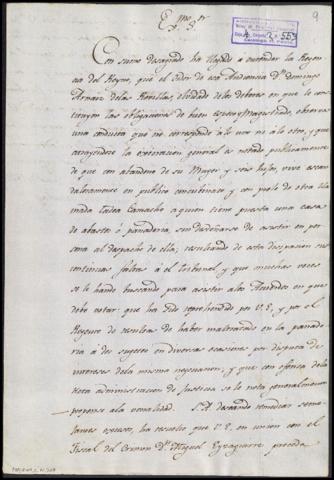 Exmo. Sr.
9
Con sumo desagrado ha llegado a entender la Regen
cia del Reyno, que el oidor de esa Audiencia Dn. Domingo
Arnaiz de las Revillas, olvidado de los deberes en que le cons
tituyen las obligaciones de buen esposo y Magistrado, observa
una conducta que no corresponde à lo uno ni à lo otro, y que
atrayendose la execracion general es notado publicamente
de que con abandono de su Muger y seis hijos, vive escan
dalosamente en publico concubinato con
mada Tadea Camacho a quien tiene puesta una casa
de abasto ó panaderia, sin desdeñarse de asistir en per
sona al despacho de ella; resultando de esta disipacion sus
continuas faltas à el tribunal, y que muchas veces
se le hande buscando para asistir à las Audiencias en que
debe votar: que ha sido reprehendido por V.E., y por el
Regente de resultas de haber maltratado en la panade
ria à dos sugetos en diversas ocasiones por disputa de
intereses de la misma negociacion; y que con ofensa de la
recta administracion de Justicia se le nota generalmente
propenso à la venalidad. S.A. deseando remediar seme
jantes excesos, ha resuelto que V.E. en union con el
Fiscal del Crimen Dn. Miguel Eyzaguirre proceda